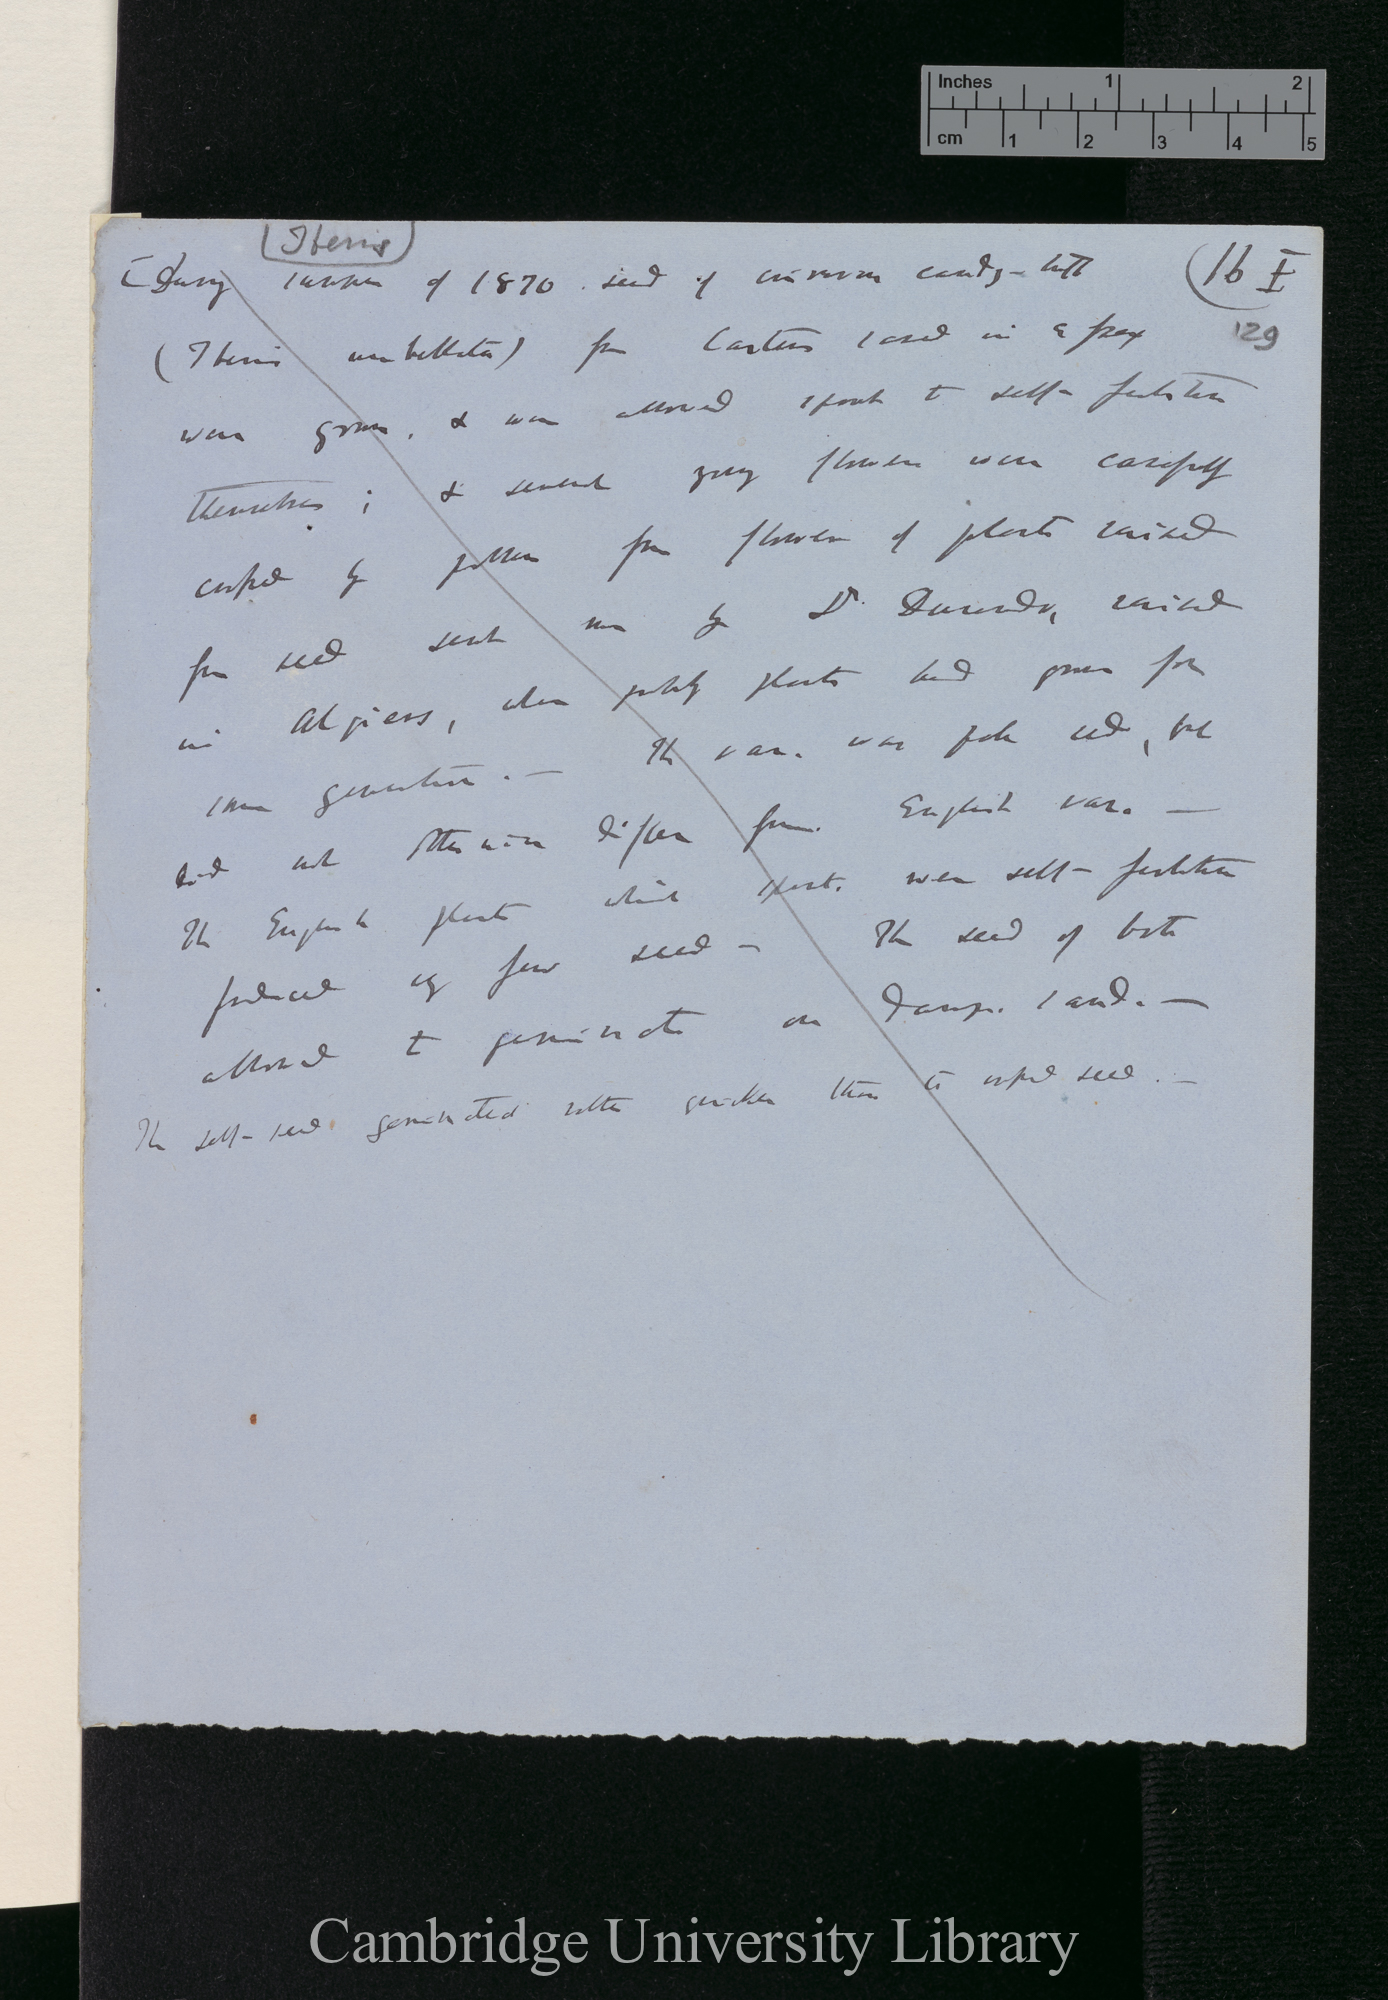 Inches 1 2
cm 1 2 3 4 5
Iberis
[During summer of 1870. seed of crimson candy-tuft
(16 I
129
(Iberis umbellata) from Carters raised in a
were grown, & were allowed to self-fertilise
themselves; & several flowers were carefully
crossed by pollen from flowers of plants raised
from seed sent me by Dr. Durando, raised
in Algiers, where probably plants had grown for
some generations. — The var. was pale red, but
did not otherwise differ from English var. —
The English plants which were self-fertilise
produced very few seed — The seed of both
allowed to germinate on damp. sand. —
The self-seed germinated rather quicker than to crossed seed. —
Cambridge University Library